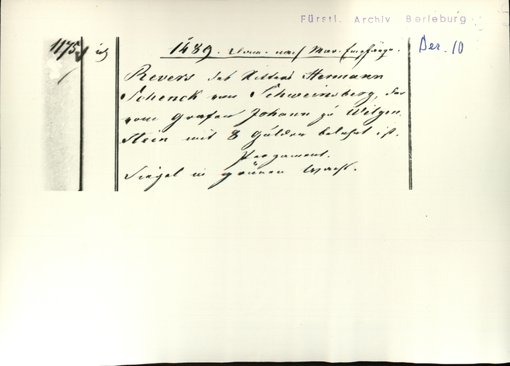 Fürstl. Archiv Berleburg
Ber. 10
1175
1489. Donn. nach Mar. Empfängn.
Revers des Ritters Hermann
Schenck von Schweinsberg, der
vom Grafen Johann zu Witgen-
stein mit 8 Gulden belehnt ist.
Pergament.
Siegel in grünem Wachs.